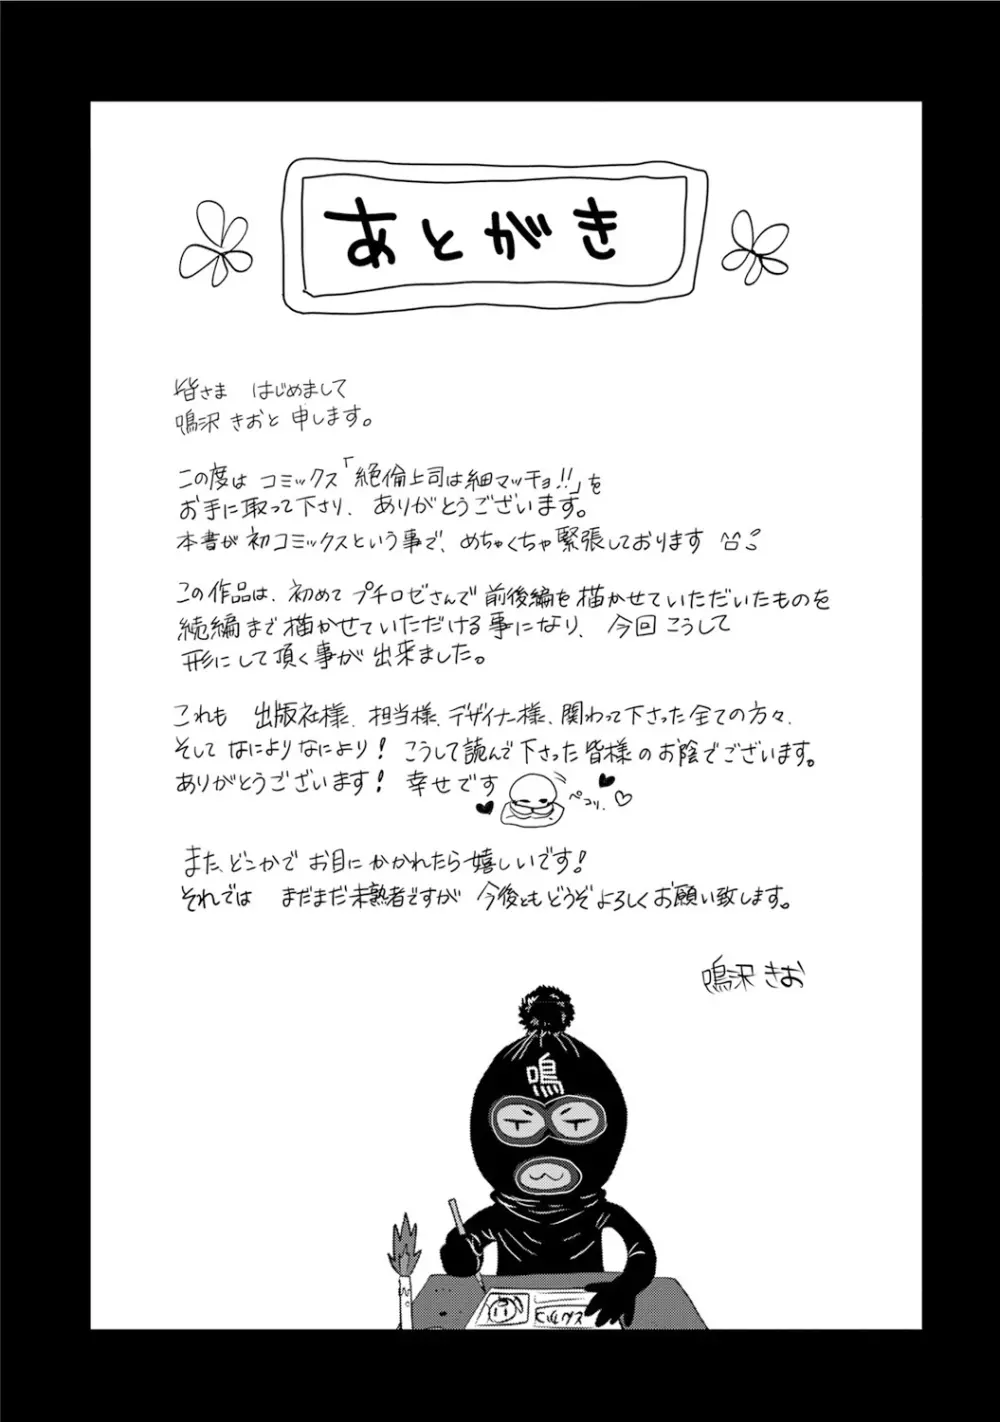 あとがき
皆さま はじめまして
鳴沢 きおと 申します。
この度は コミックス「絶倫上司は細マッチョ!!」を
お手に取って下さり、ありがとうございます。
本書が 初コミックスという事で、めちゃくちゃ緊張しております
この作品は、初めて プチロゼさんで 前後編を 描かせていただいたものを
続編まで 描かせていただける事になり、今回 こうして
形にして頂く事が 出来ました。
これも 出版社様、担当様、デザイナー様、関わって下さった 全ての方々、
そして なにより なにより! こうして読んで下さった 皆様のお陰でございます。
ありがとうございます! 幸せです
ペコリ、♡
また、どこかで お目にかかれたら 嬉しいです!
それでは まだまだ 未熟者ですが 今後とも どうぞ よろしく お願い致します。
鳴沢 きお
鳴